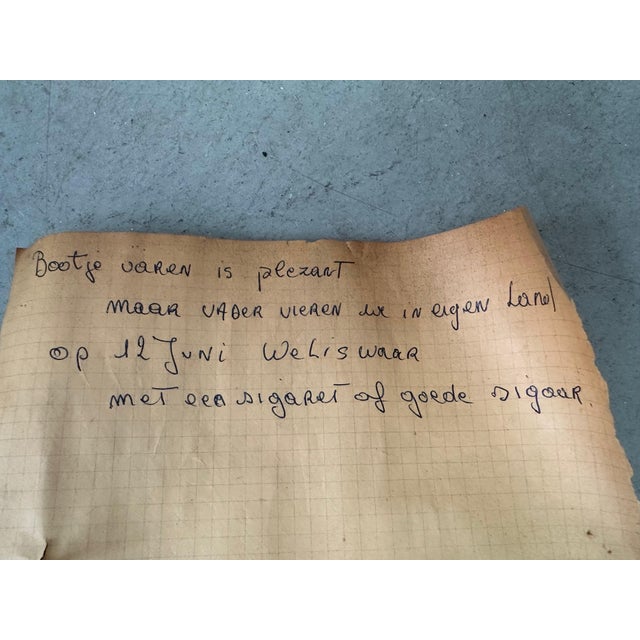 Bootje varen is plezant
maar vader vieren we in eigen land
op 12 Juni weliswaar
met een sigaret of goede sigaar.